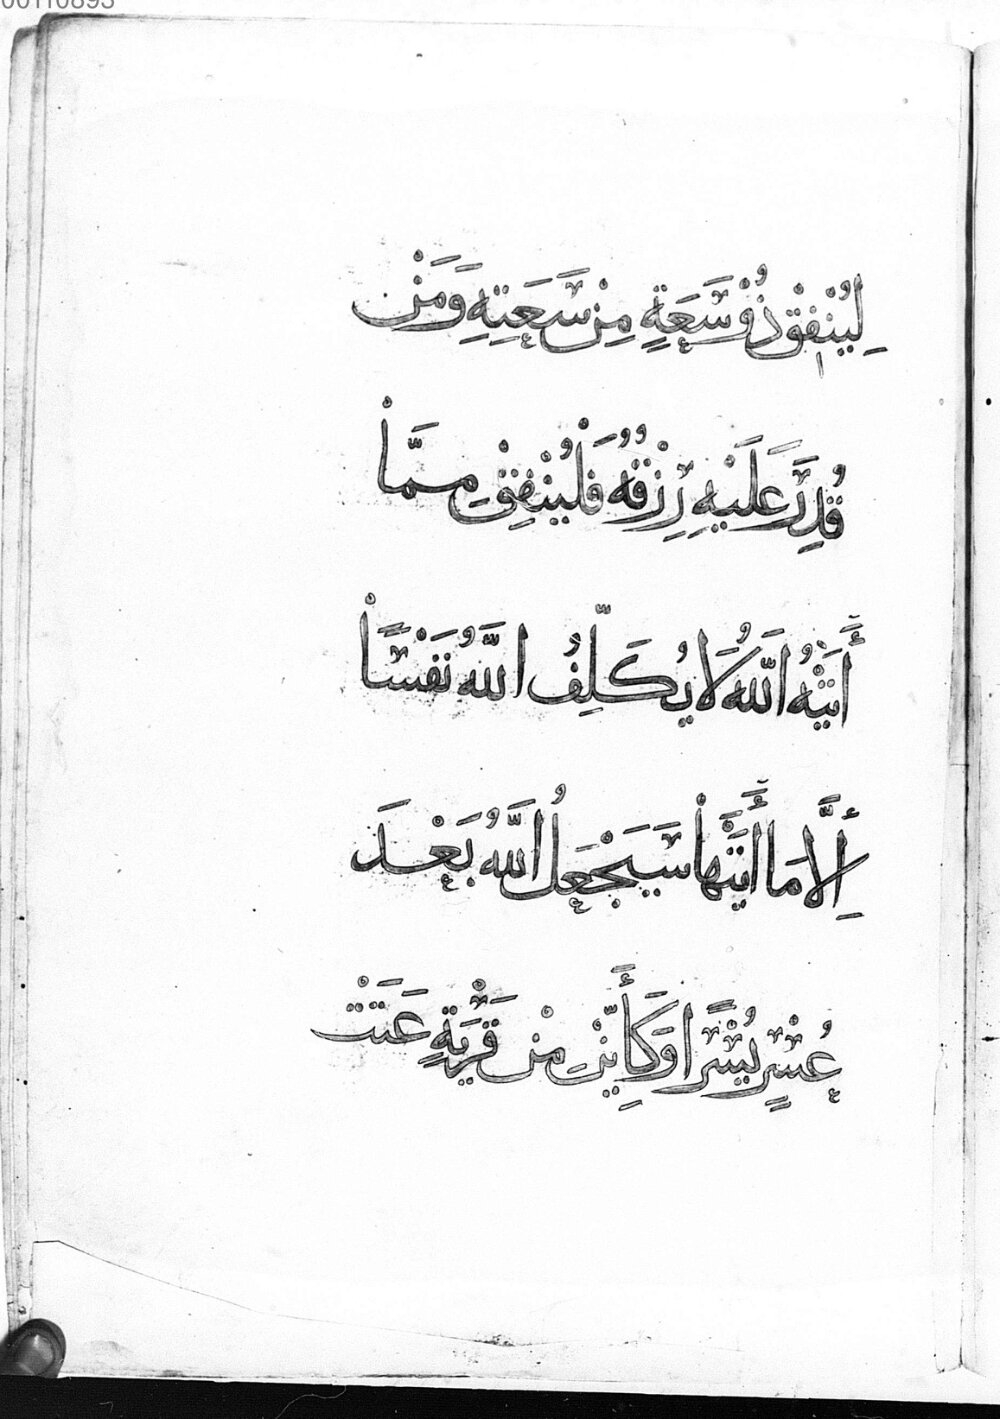 00110893
لِيُنْفِقْ ذُوْسَعَةٍ مِنْ سَعَتِهِ وَمَنْ
قُدِرَ عَلَيْهِ رِزْقُهُ فَلْيُنْفِقْ مِمَّا
أَتَيٰهُ اَللّٰهُ لَا يُكَلِّفُ اللّٰهُ نَفْسًا
إِلَّا مَا أَتَيٰهَا سَيَجْعَلُ اَللّٰهُ بَعْدَ
عُسْرٍ يُسْرًا وَكَأَيِّنْ مِنْ قَرْيَةٍ عَتَتْ